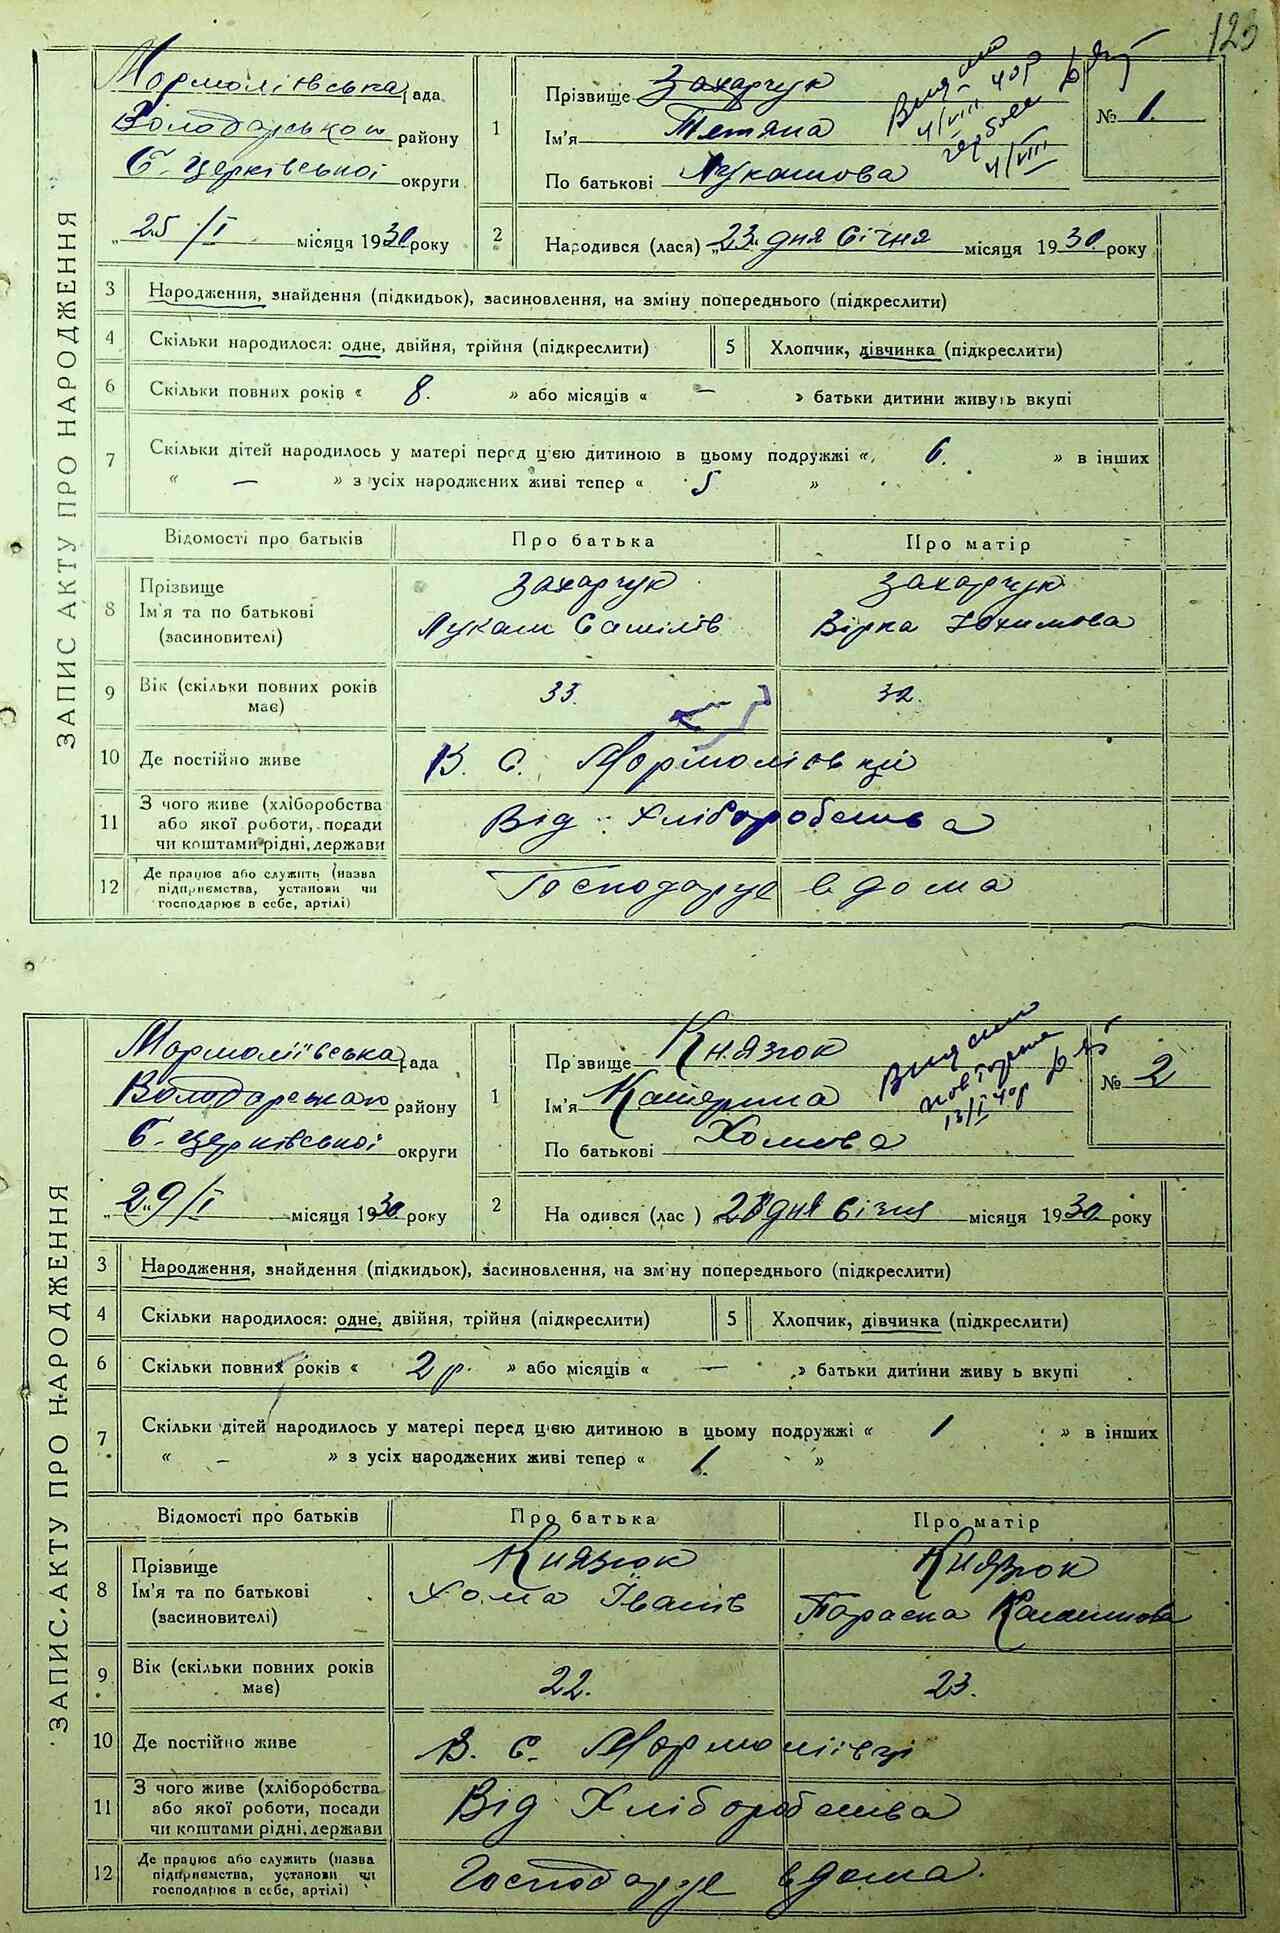 123
ЗАПИС АКТУ ПРО НАРОДЖЕННЯ
Мормоліївська рада
Володарського району
Б. Церківської округи
„25/I місяця 1930 року
1
Прізвище Захарчук
Ім'я Тетяна
По батькові Лукашова
4/VIII 40р
4/VIII
№ 1.
2
Народився (лася) „23„ дня Січня місяця 1930 року
3 Народження, знайдення (підкидьок), засиновлення, на зміну попереднього (підкреслити)
4 Скільки народилося: одне, двійня, трійня (підкреслити)
5 Хлопчик, дівчинка (підкреслити)
6 Скільки повних років « 8. » або місяців « — » батьки дитини живуть вкупі
7 Скільки дітей народилось у матері перед цією дитиною в цьому подружжі « 6. » в інших
« — » з усіх народжених живі тепер « 5 »
Відомості про батьків Про батька Про матір
8 Прізвище Захарчук Захарчук
Ім'я та по батькові Лукаш Самілів Вірка Юхимова
(засиновителі)
9 Вік (скільки повних років має) 33. 32.
10 Де постійно живе В. С. Мормоліївці
11 З чого живе (хліборобства
або якої роботи, посади Від Хліборобства
чи коштами рідні, держави
12 Де працює або служить (назва
підприємства, установи чи Господарує в дома
господарює в себе, артілі)
ЗАПИС АКТУ ПРО НАРОДЖЕННЯ
Мормоліївська рада
Володарського району
Б. Церківської округи
„29/I місяця 1930 року
1
Прізвище Князюк
Ім'я Катерина
По батькові Хомова
13/I 40р
№ 2
2
На одився (лас ) „28 дня Січня місяця 1930 року
3 Народження, знайдення (підкидьок), засиновлення, на зміну попереднього (підкреслити)
4 Скільки народилося: одне, двійня, трійня (підкреслити)
5 Хлопчик, дівчинка (підкреслити)
6 Скільки повних років « 2 р. » або місяців « — » батьки дитини живу ь вкупі
7 Скільки дітей народилось у матері перед цією дитиною в цьому подружжі « 1 » в інших
« — » з усіх народжених живі тепер « 1. »
Відомості про батьків Про батька Про матір
8 Прізвище Князюк Князюк
Ім'я та по батькові Хома Іванів Параска
(засиновителі)
9 Вік (скільки повних років має) 22. 23.
10 Де постійно живе В. С. Мормоліївці
11 З чого живе (хліборобства
або якої роботи, посади Від Хліборобства
чи коштами рідні, держави
12 Де працює або служить (назва
підприємства, установи чи Господарує в дома.
господарює в себе, артілі)